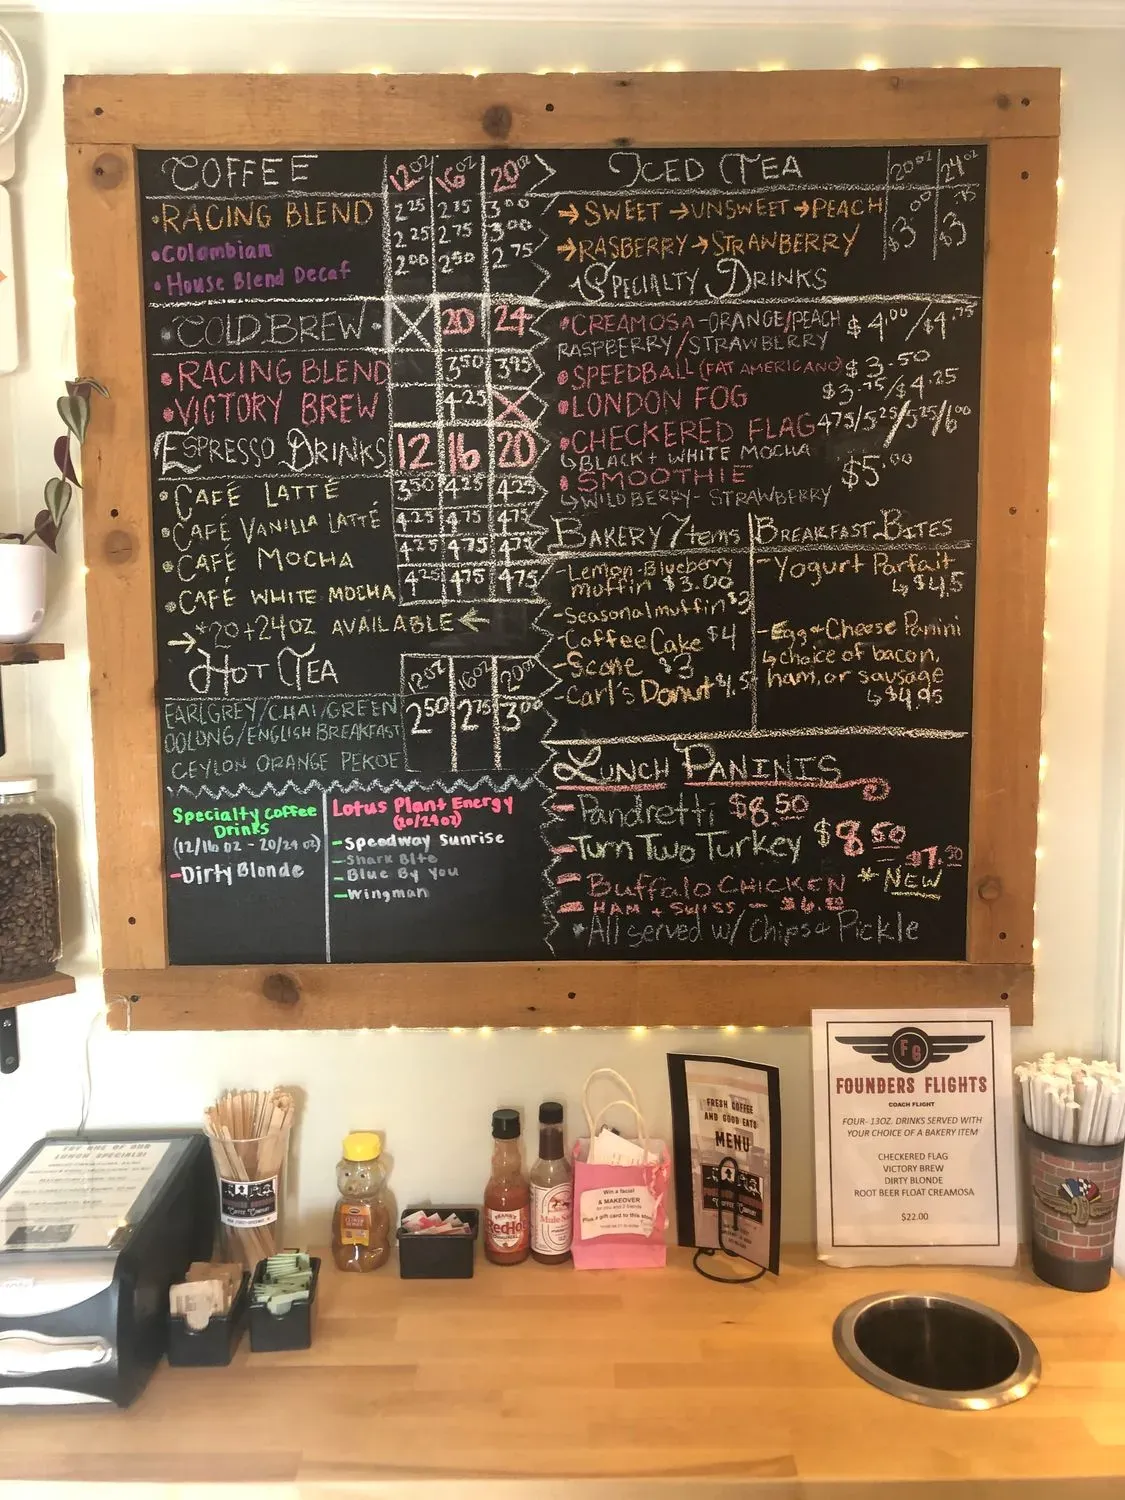 COFFEE 12oz 16oz 20oz
•RACING BLEND 2.25 2.75 3.00
•Colombian 2.25 2.75 3.00
•House Blend Decaf 2.00 2.50 2.75
•COLD BREW• X 20 24
•RACING BLEND 3.50 3.95
•VICTORY BREW 4.25 X
ESPRESSO DRINKS 12 16 20
•CAFÉ LATTÉ 3.50 4.25 4.25
•CAFÉ VANILLA LATTÉ 4.25 4.75 4.75
•CAFÉ MOCHA 4.25 4.75 4.75
•CAFÉ WHITE MOCHA 4.25 4.75 4.75
→ *20+24OZ AVAILABLE ←
HOT TEA 12oz 16oz 20oz
EARLGREY/CHAI/GREEN 2.50 2.75 3.00
OOLONG/ENGLISH BREAKFAST
CEYLON ORANGE PEKOE
Specialty Coffee
Drinks
(12/16 oz - 20/24 oz)
-Dirty Blonde
Lotus Plant Energy
(20/24oz)
-Speedway Sunrise
-Shark Bite
-Blue By You
-Wingman
ICED TEA 20oz 24oz
→SWEET →UNSWEET →PEACH $3.00 $3.75
→RASBERRY →STRAWBERRY
SPECIALTY DRINKS
•CREAMOSA-ORANGE/PEACH $4.00/$4.75
RASPBERRY/STRAWBERRY
•SPEEDBALL (FAT AMERICANO) $3.50
•LONDON FOG $3.75/$4.25
•CHECKERED FLAG 4.75/5.25/5.25/6.00
↳BLACK+WHITE MOCHA
•SMOOTHIE $5.00
↳WILDBERRY-STRAWBERRY
BAKERY Items
-Lemon-Blueberry
muffin $3.00
-Seasonal muffin $3
-Coffee Cake $4
-Scone $3
-Carl's Donut $1.5
BREAKFAST BITES
-Yogurt Parfait
↳$4.5
-Egg+Cheese Panini
↳choice of bacon,
ham, or sausage
↳$4.95
LUNCH PANINIS
-Pandretti $8.50
-Turn Two Turkey $8.50
-Buffalo CHICKEN - $7.50 *NEW
-HAM + SWISS - $6.50
*All served w/ Chips+ Pickle
TRY ONE OF OUR
LUNCH SPECIALS!
FRANK'S
RedHot
Win a facial
& MAKEOVER
for you and 2 friends
Plus a gift card to this store
FRESH COFFEE
AND GOOD EATS
MENU
FG
FOUNDERS FLIGHTS
COACH FLIGHT
FOUR- 13OZ. DRINKS SERVED WITH
YOUR CHOICE OF A BAKERY ITEM
CHECKERED FLAG
VICTORY BREW
DIRTY BLONDE
ROOT BEER FLOAT CREAMOSA
$22.00